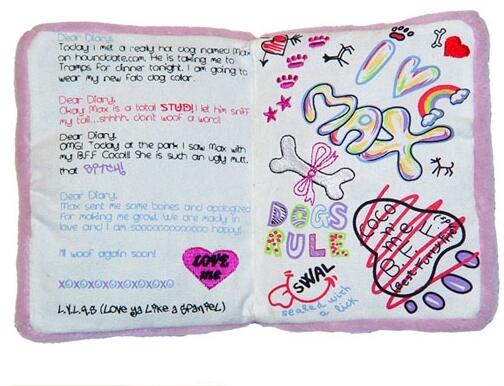 Dear Diary,
Today I met a really hot dog named Max
on hounddate.com. He is taking me to
Tramps for dinner tonight. I am going to
wear my new fab dog collar...
Dear Diary,
Okay Max is a total STUD! I let him sniff
my tail....shhhh, dont woof a word!
Dear Diary,
OMG! Today at the park I saw Max with
my B.F.F Coco!! She is such an ugly mutt,
that BITCH!
Dear Diary,
Max sent me some bones and apologized
for making me growl. We are madly in
love and I am soooooooooooooo happy!
I'll woof again soon!
LOVE
me
XOXOXOXOXOXOXOXO
L.Y.L.A.S (Love ya Like a Spaniel)
I
MAX
DOGS
RULE
SWAL
sealed with
a lick
COCO
n me
B.F.F.
(Best Fur ever)